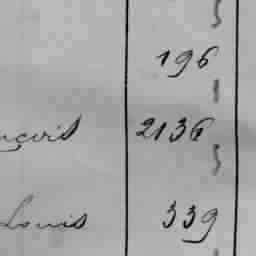 196
nçois 2136
Louis 339